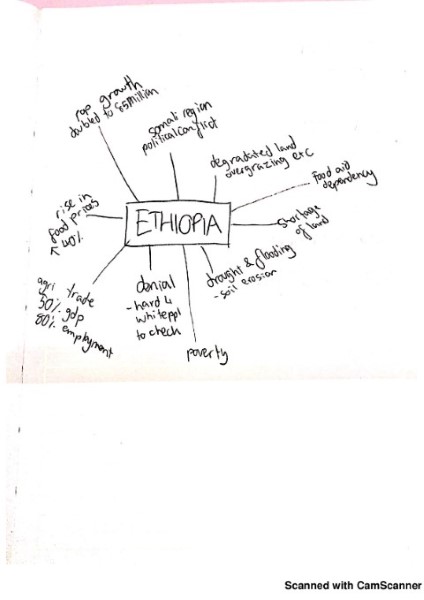 pop growth
doubled to 85million
somali region
political conflict
degradated land
overgrazing etc
Food aid
dependency
shortage
of land
drought & flooding
- soil erosion
poverty
denial
- hard 4
white ppl
to check
agri trade
50% gdp
80% employment
rise in
food prices
↑ 40%
ETHIOPIA
Scanned with CamScanner